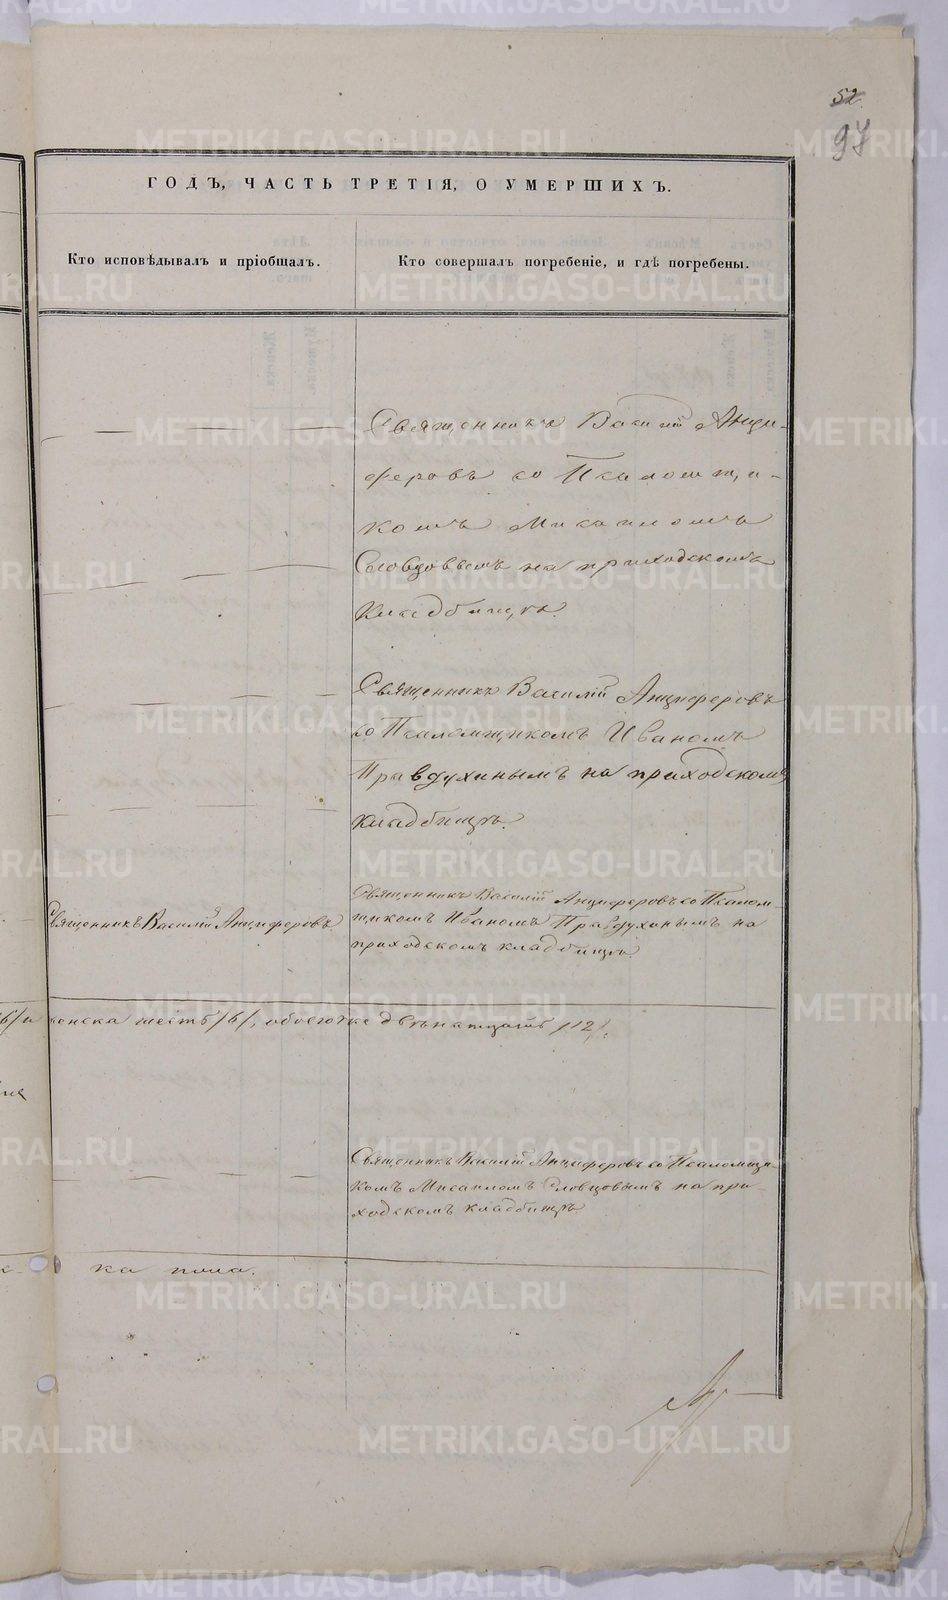 52
97
ГОДЪ, ЧАСТЬ ТРЕТІЯ, О УМЕРШИХЪ.
Кто исповѣдывалъ и пріобщалъ.
Кто совершалъ погребеніе, и гдѣ погребены.
Священникъ Василій Анци-
феровъ со Псаломщи-
комъ Мисаиломъ
Словцовымъ на приходскомъ
кладбищѣ.
Священникъ Василій Анциферовъ
со Псаломщикомъ Иваномъ
Правдухинымъ на приходскомъ
кладбищѣ.
Священникъ Василій Анциферовъ
Священникъ Василій Анциферовъ со Псалом-
щикомъ Иваномъ Правдухинымъ на
приходскомъ кладбищѣ.
/6/ и женска шесть /6/, обоего же двѣнатцать /12/.
Священникъ Василій Анциферовъ со Псаломщи-
комъ Мисаиломъ Словцовымъ на при-
ходскомъ кладбищѣ.
ка пола.
METRIKI.GASO-URAL.RU